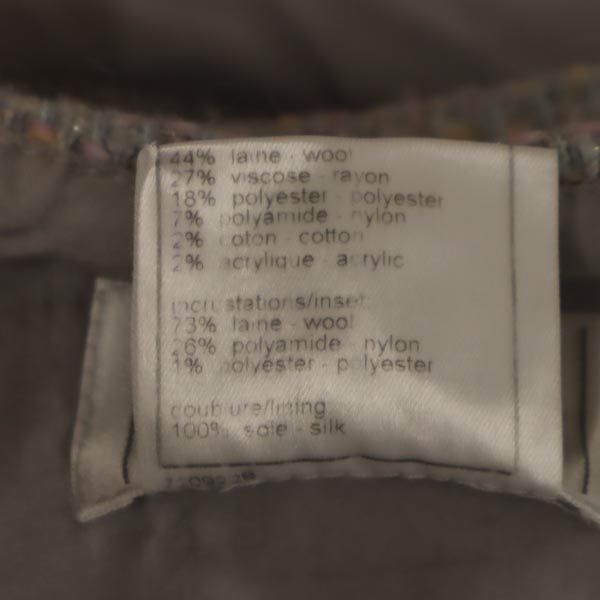 44% laine - wool
27% viscose - rayon
18% polyester - polyester
7% polyamide - nylon
2% coton - cotton
2% acrylique - acrylic
incrustations/inset:
73% laine - wool
26% polyamide - nylon
1% polyester - polyester
doublure/lining
100% soie - silk